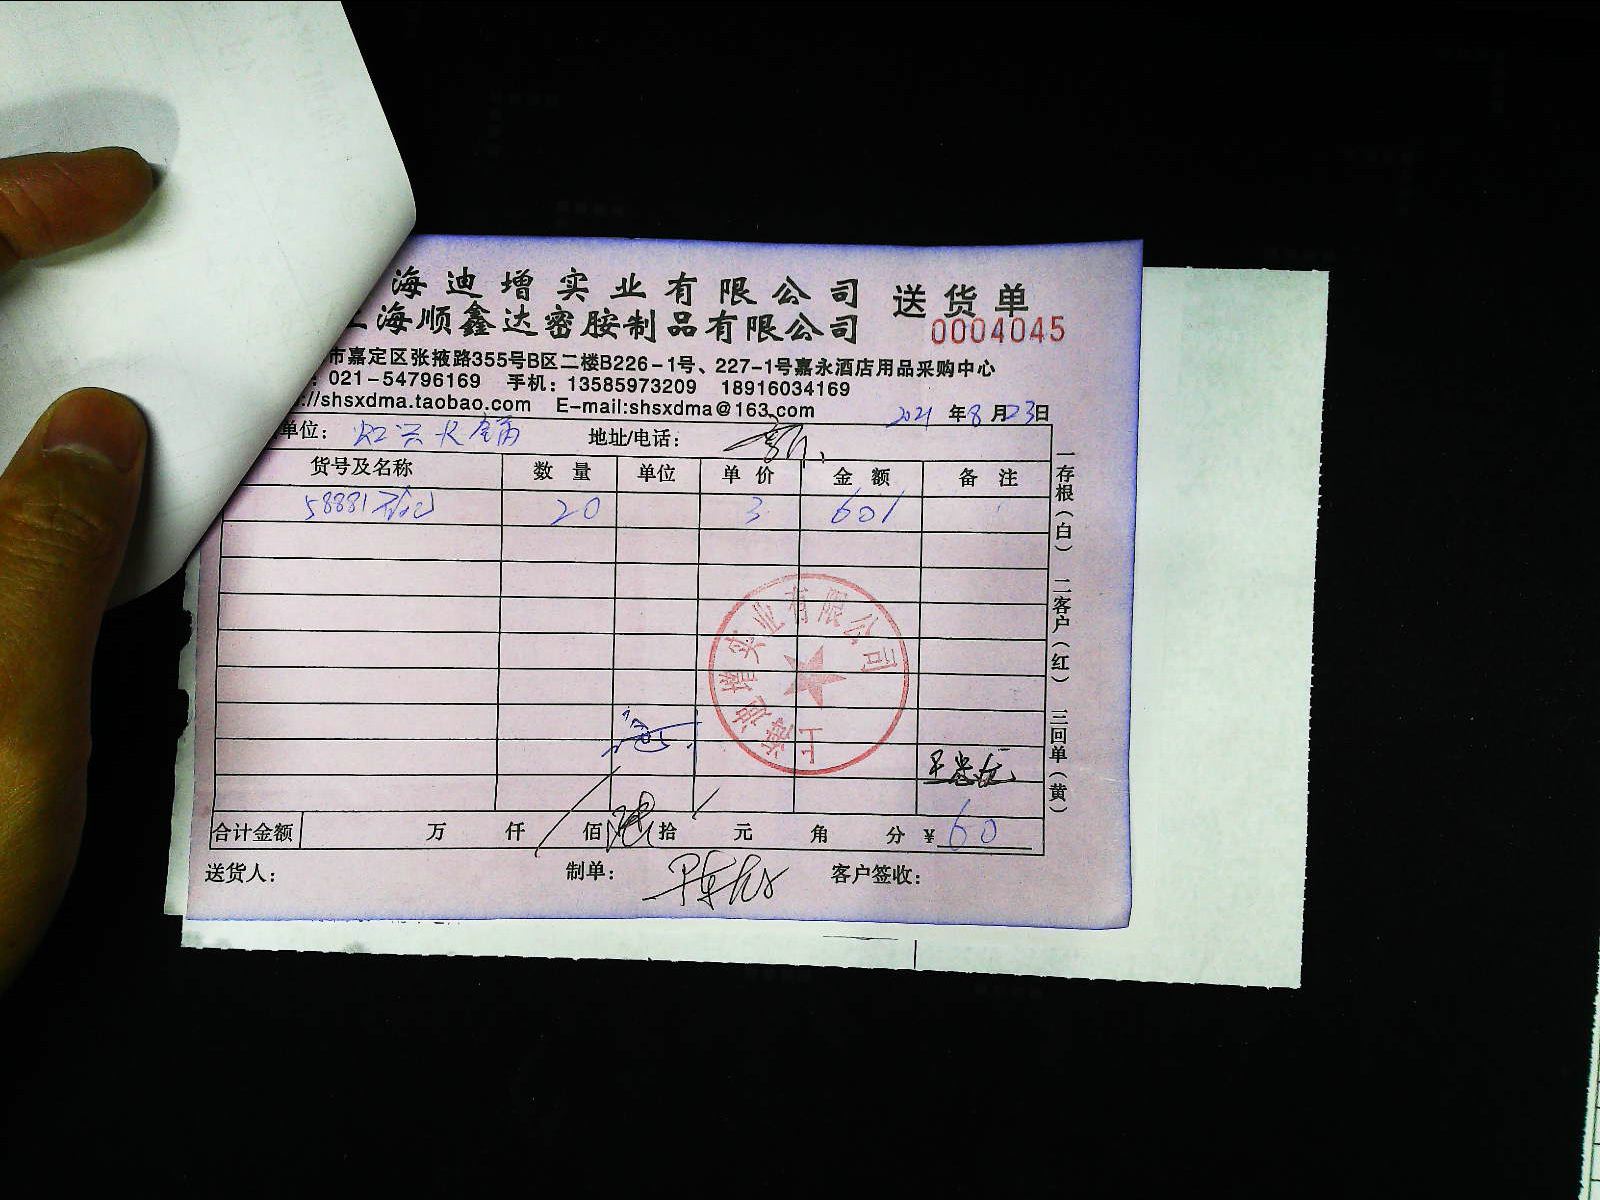 海迪增实业有限公司 送货单
上海顺鑫达密胺制品有限公司 0004045
市嘉定区张掖路355号B区二楼B226-1号、227-1号嘉永酒店用品采购中心
: 021-54796169 手机: 13585973209 18916034169
://shsxdma.taobao.com E-mail:shsxdma@163.com
2021 年 8 月 23 日
单位: 地址/电话:
货号及名称 数量 单位 单价 金额 备注
58881 20 3 60
一存根(白) 二客户(红) 三回单(黄)
上海迪增实业有限公司
合计金额 万 仟 佰 陆 拾 元 角 分 ¥ 60
送货人: 制单: 客户签收: